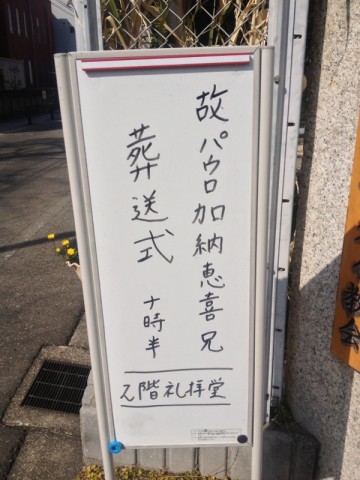 故パウロ加納恵喜兄
葬送式 十時半
2階礼拝堂
教会